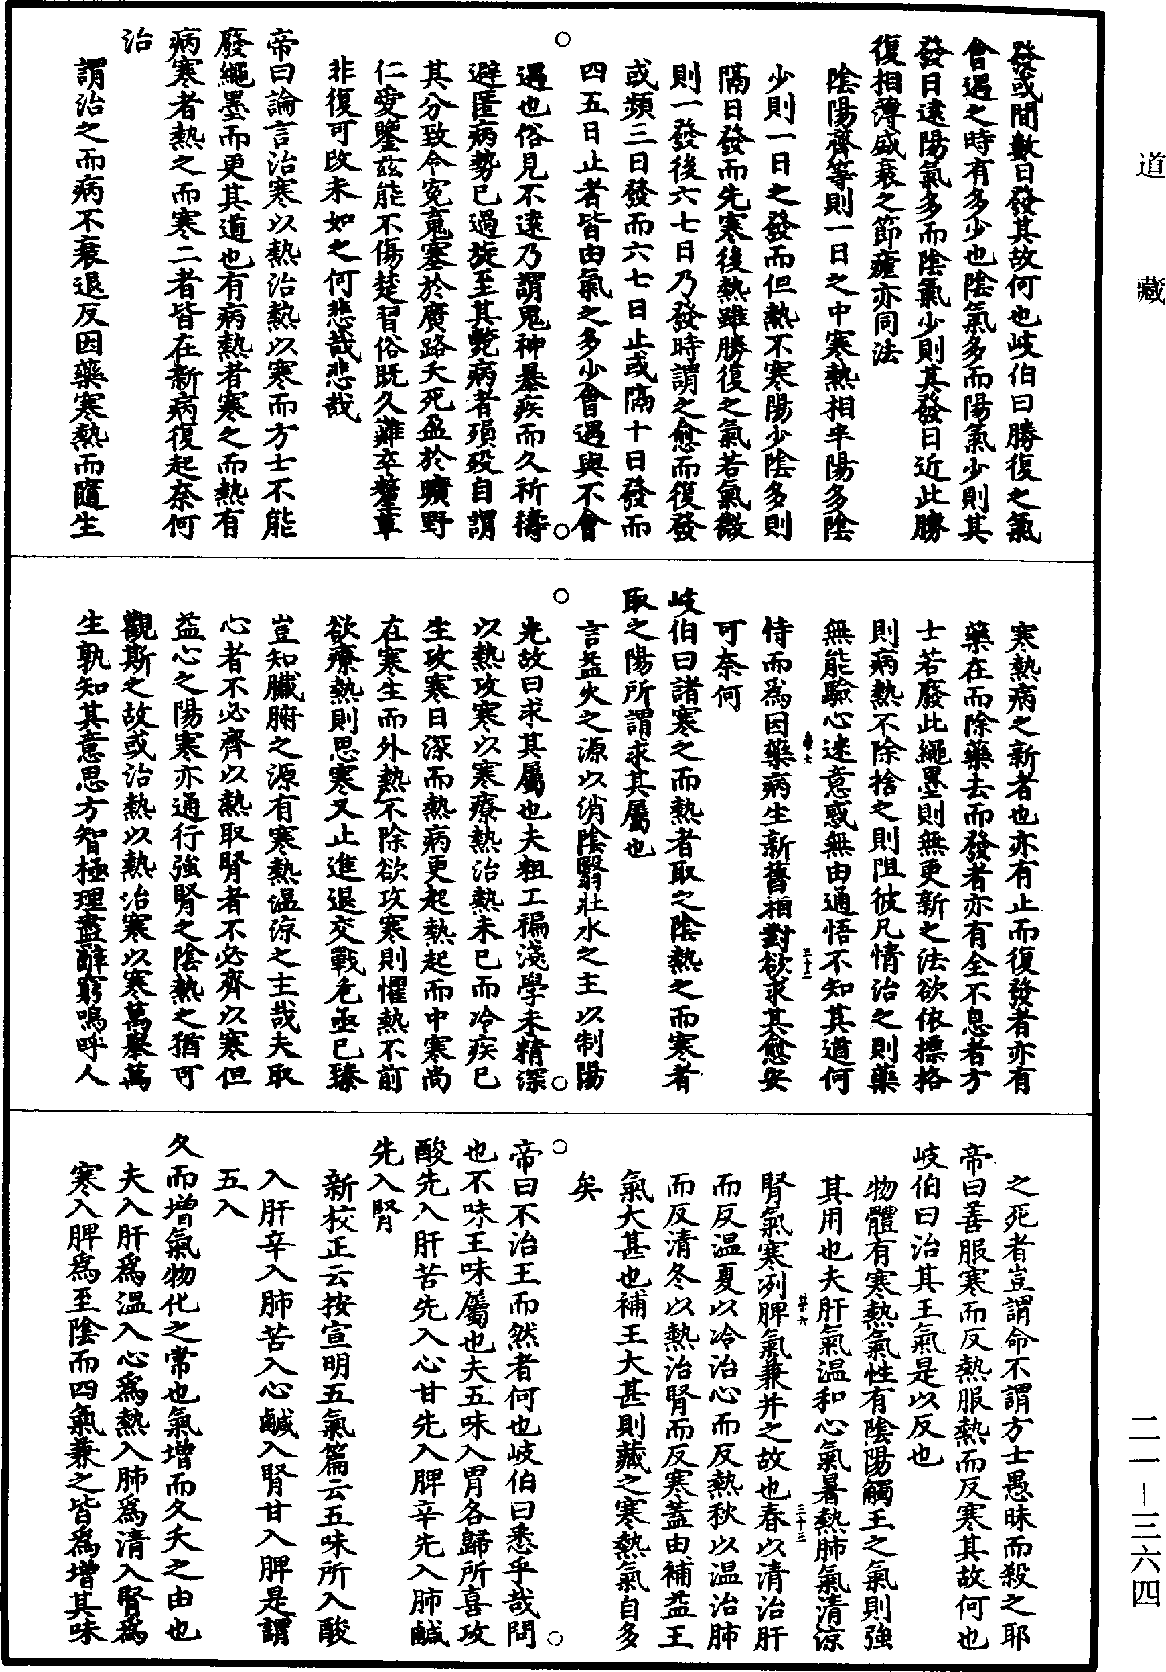 道藏
發或間數日發其故何也岐伯曰勝復之氣
會遇之時有多少也陰氣多而陽氣少則其
發日遠陽氣多而陰氣少則其發日近此勝
復相薄盛衰之節瘧亦同法
陰陽齊等則一日之中寒熱相半陽多陰
少則一日之發而但熱不寒陽少陰多則
隔日發而先寒後熱雖勝復之氣若氣微
則一發後六七日乃發時謂之愈而復發
或頻三日發而六七日止或隔十日發而
四五日止者皆由氣之多少會遇與不會
遇也俗見不遠乃謂鬼神暴疾而久祈禱
避匿病勢已過旋至其斃病者殞歿自謂
其分致令冤䰟塞於廣路夭死盈於曠野
仁愛鑒茲能不傷楚習俗既久難卒釐革
非復可改未如之何悲哉悲哉
帝曰論言治寒以熱治熱以寒而方士不能
廢繩墨而更其道也有病熱者寒之而熱有
病寒者熱之而寒二者皆在新病復起奈何
治
謂治之而病不衰退反因藥寒熱而隨生
寒熱病之新者也亦有止而復發者亦有
藥在而除藥去而發者亦有全不息者方
士若廢此繩墨則無更新之法欲依標格
則病熱不除捨之則阻彼凡情治之則藥
無能驗心迷意惑無由通悟不知其道何
恃而為因藥病生新舊相對欲求其愈安
可奈何
岐伯曰諸寒之而熱者取之陰熱之而寒者
取之陽所謂求其屬也
言益火之源以消陰翳壯水之主以制陽
光故曰求其屬也夫粗工褊淺學未精深
以熱攻寒以寒療熱治熱未已而冷疾已
生攻寒日深而熱病更起熱起而中寒尚
在寒生而外熱不除欲攻寒則懼熱不前
欲療熱則思寒又止進退交戰危亟已臻
豈知臟腑之源有寒熱溫涼之主哉夫取
心者不必齊以熱取腎者不必齊以寒但
益心之陽寒亦通行強腎之陰熱之猶可
觀斯之故或治熱以熱治寒以寒萬舉萬
生孰知其意思方智極理盡辭窮嗚呼人
之死者豈謂命不謂方士愚昧而殺之耶
帝曰善服寒而反熱服熱而反寒其故何也
岐伯曰治其王氣是以反也
物體有寒熱氣性有陰陽觸王之氣則強
其用也夫肝氣溫和心氣暑熱肺氣清涼
腎氣寒冽脾氣兼并之故也春以清治肝
而反溫夏以冷治心而反熱秋以溫治肺
而反清冬以熱治腎而反寒蓋由補益王
氣大甚也補王大甚則藏之寒熱氣自多
矣
帝曰不治王而然者何也岐伯曰悉乎哉問
也不味王味屬也夫五味入胃各歸所喜攻
酸先入肝苦先入心甘先入脾辛先入肺鹹
先入腎
新校正云按宣明五氣篇云五味所入酸
入肝辛入肺苦入心鹹入腎甘入脾是謂
五入
久而增氣物化之常也氣增而久夭之由也
夫入肝為溫入心為熱入肺為清入腎為
寒入脾為至陰而四氣兼之皆為增其味
二一—三六四